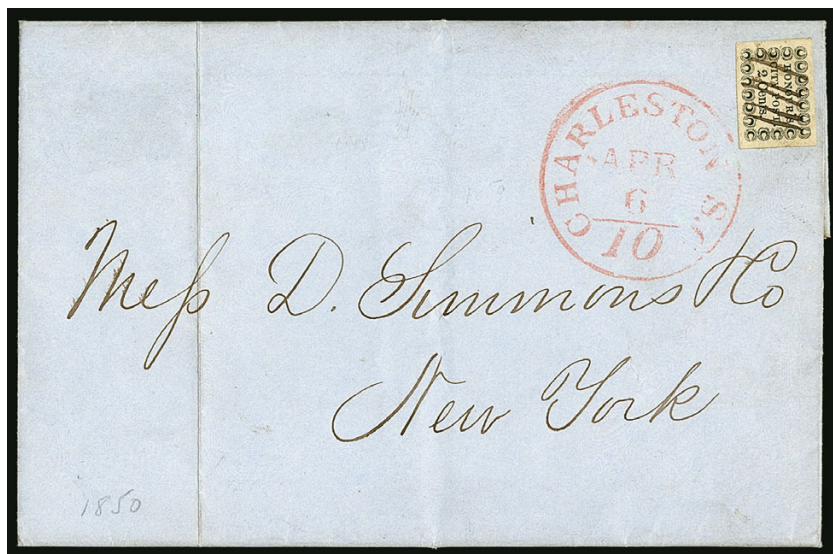 HONOUR'S
CITY POST
2 Cents.
CHARLESTON S.C.
APR
6
10
Mess D. Simmons & Co
New York
1850